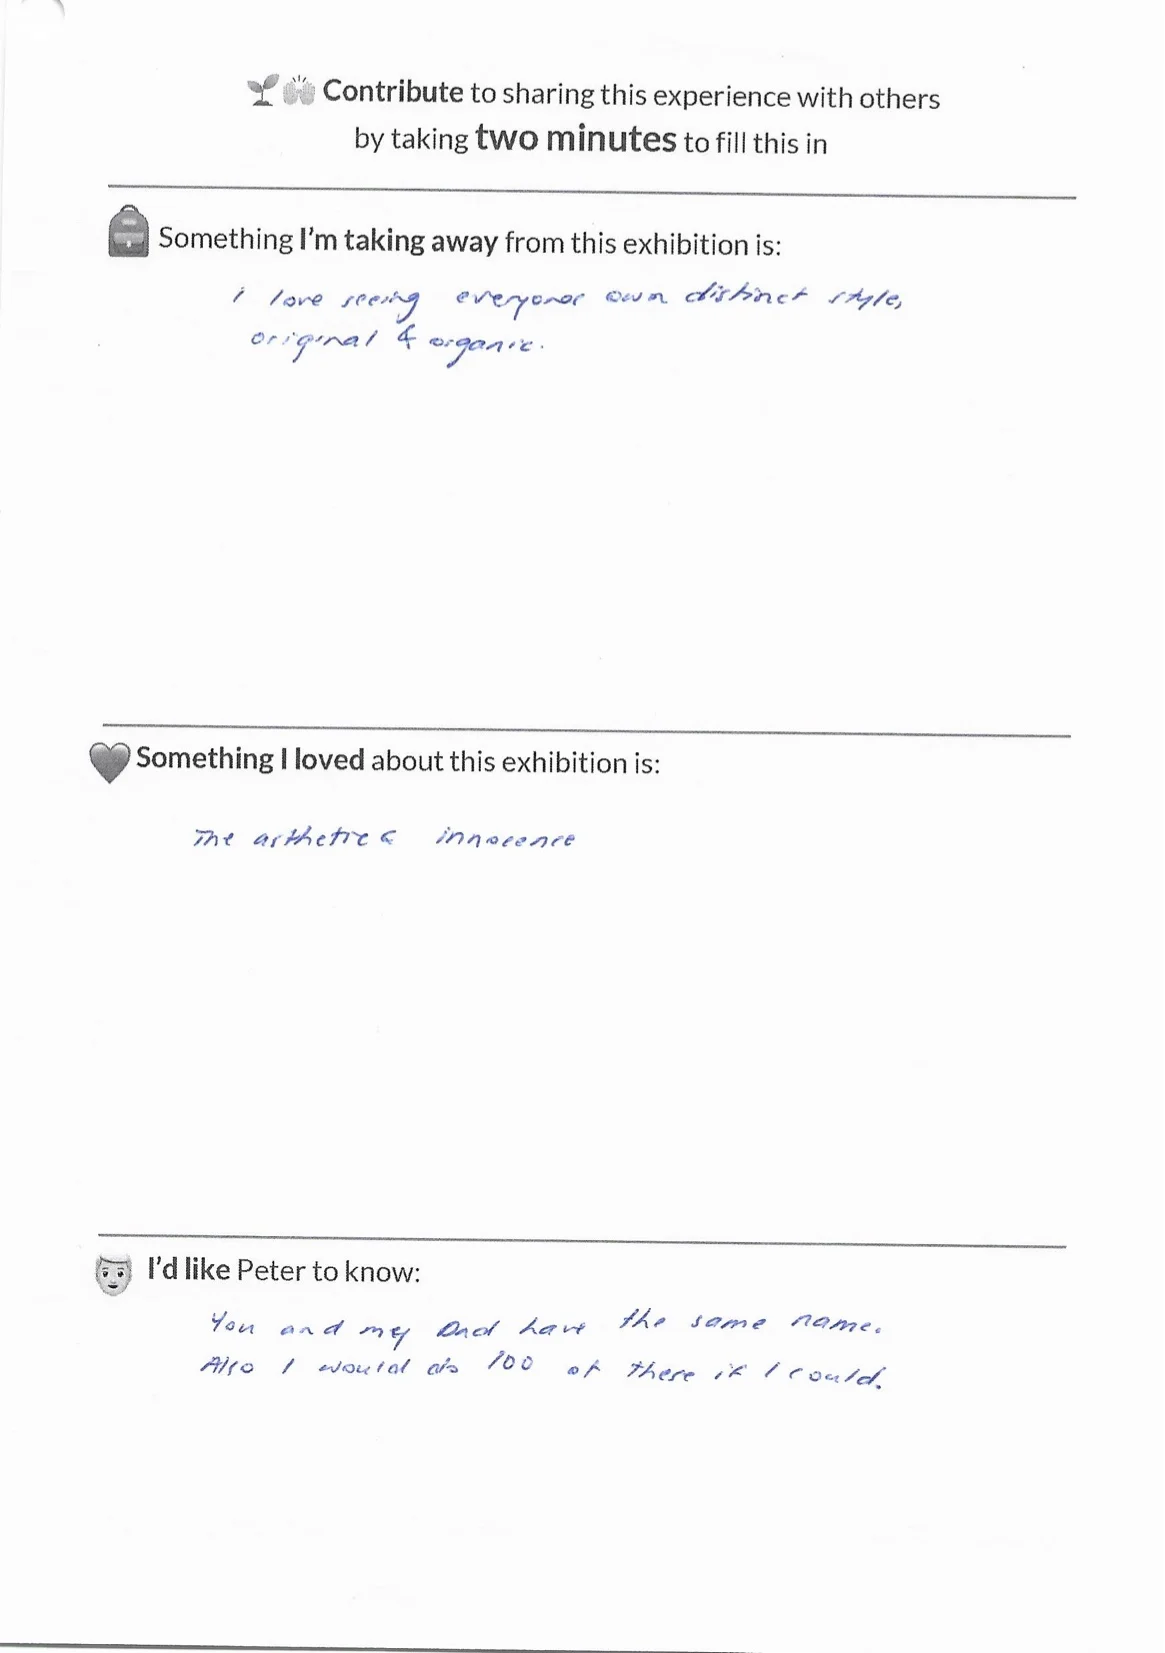 Contribute to sharing this experience with others
by taking two minutes to fill this in
Something I'm taking away from this exhibition is:
i love seeing everyones own distinct style,
original & organic.
Something I loved about this exhibition is:
The asthetic & innocence
I'd like Peter to know:
You and my Dad have the same name.
Also I would do 100 of these if I could.